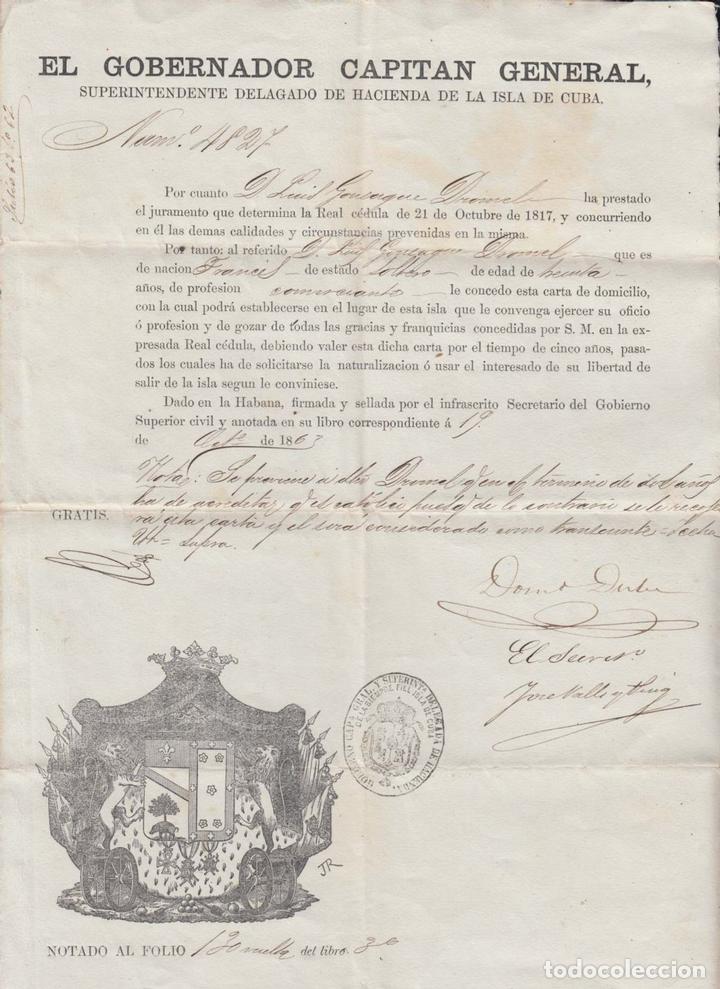 EL GOBERNADOR CAPITAN GENERAL,
SUPERINTENDENTE DELAGADO DE HACIENDA DE LA ISLA DE CUBA.
Numº 4827
Por cuanto D Luis Gonzague Dromel ha prestado
el juramento que determina la Real cédula de 21 de Octubre de 1817, y concurriendo
en él las demas calidades y circunstancias prevenidas en la misma.
Por tanto: al referido D. Luis Gonzague Dromel que es
de nacion Francés de estado soltero de edad de treinta
años, de profesion comerciante le concedo esta carta de domicilio,
con la cual podrá establecerse en el lugar de esta isla que le convenga ejercer su oficio
ó profesion y de gozar de todas las gracias y franquicias concedidas por S. M. en la ex-
presada Real cédula, debiendo valer esta dicha carta por el tiempo de cinco años, pasa-
dos los cuales ha de solicitarse la naturalizacion ó usar el interesado de su libertad de
salir de la isla segun le conviniese.
Dado en la Habana, firmada y sellada por el infrascrito Secretario del Gobierno
Superior civil y anotada en su libro correspondiente á 19
de Octe de 1863
Nota: Se previene á dho Dromel qe en el termino de dos años
ha de acreditar qe es católico pues qe de lo contrario se le recoje
rá esta carta y él será considerado como transeunte = Fecha
Ut supra.
GRATIS.
El Secretº
José Valls y Puig
JR
NOTADO AL FOLIO 130 vuelta del libro 3º
todocoleccion
todocoleccion.net